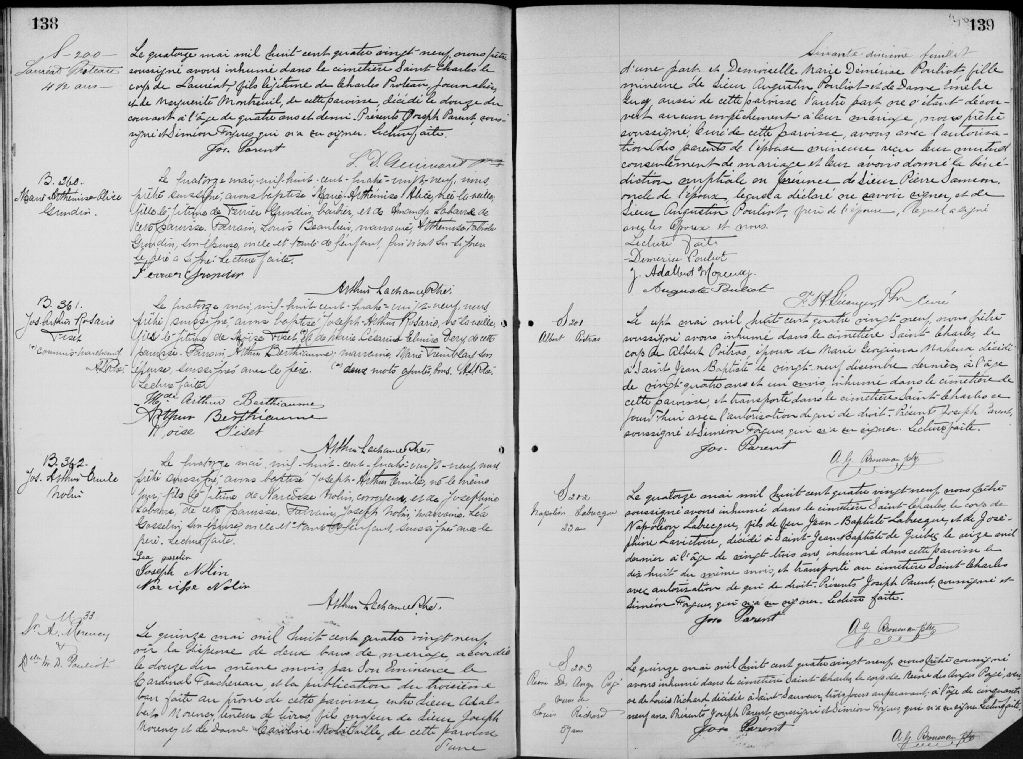 138
S. 200
Laureat Proteau
4½ ans
Le quatorze mai mil huit cent quatre vingt neuf, nous prêtre
soussigné avons inhumé dans le cimetière Saint Charles le
corps de Laureat, fils légitime de Charles Proteau, journalier,
et de Marguerite Montreuil, de cette paroisse, décédé le douze du
courant à l'âge de quatre ans et demi. Présents Joseph Parent, sous-
signé et Siméon Forgues qui n'a su signer. Lecture faite.
Jos. Parent
B. 360.
Marie Arthemise Alice
Grondin.
Le quatorze mai, mil-huit-cent-quatre-vingt-neuf, nous
prêtre soussigné, avons baptisé Marie Arthemise Alice, née la veille,
fille légitime de Ferrier Grondin, barbier, et de
cette paroisse. Parrain, Louis Beaulieu, marraine, Arthemise
Grondin, son épouse, oncle et tante de l'enfant, qui n'ont su signer.
Le père a signé. Lecture faite.
Ferrier Grondin
Arthur Lachance Ptre.
B. 361.
Jos. Arthur Rosario
Fiset
Le quatorze mai, mil-huit-cent-quatre-vingt-neuf, nous
prêtre, soussigné, avons baptisé Joseph-Arthur Rosario, né la veille,
fils légitime de Moïse Fiset et de Marie
paroisse. Parrain, Arthur Berthiaume, marraine, Marie Tremblay son
épouse, soussignés avec le père. deux mots ajoutés, bons.
Lecture faite.
Arthur Berthiaume
Arthur Berthiaume
Moise Fiset
Arthur Lachance Ptre.
B. 362.
Jos. Arthur Emile
Nolin
Le quatorze mai, mil-huit-cent-quatre-vingt-neuf, nous
prêtre soussigné, avons baptisé Joseph-Arthur Emile, né le même
jour, fils légitime de Narcisse Nolin, corroyeur, et de Josephine
de cette paroisse. Parrain, Joseph Nolin, marraine, Léa
Gosselin, son épouse, oncle et tante de l'enfant, soussignés avec le
père. Lecture faite.
Lea gosselin
Joseph Nolin
Narcisse Nolin
Arthur Lachance Ptre.
M. 33
J. A. Morency
et
Delle M. D. Pouliot
Le quinze mai mil huit cent quatre vingt neuf,
vu la dispense de deux bans de mariage, accordée
le douze du même mois par Son Eminence le
Cardinal Taschereau, et la publication du troisième
ban faite au prône de cette paroisse entre Sieur Adal-
bert Morency, teneur de livres, fils majeur de Sieur Joseph
Morency et de Dame Caroline de cette paroisse
d'une
139
Soixante dixième feuillet
d'une part, et Demoiselle Marie Démérise Pouliot, fille
mineure de Sieur Augustin Pouliot et de Dame
aussi de cette paroisse d'autre part; ne s'étant décou-
vert aucun empêchement à leur mariage, nous prêtre
soussigné, Curé de cette paroisse, avons avec l'autorisa-
tion des parents de l'épouse mineure reçu leur mutuel
consentement de mariage et leur avons donné la béné-
diction nuptiale en présence de Sieur Pierre Samson,
oncle de l'époux, lequel a déclaré ne savoir signer, et de
Sieur Augustin Pouliot père de l'épouse, lequel a signé
avec les époux et nous.
Lecture faite
Démerise Pouliot
J. Adalbert Morency
Auguste Pouliot
F. H. Belanger, Ptre Curé
S 201
Albert Poitras
Le sept mai mil huit cent quatre vingt neuf, nous prêtre
soussigné avons inhumé dans le cimetière Saint Charles, le
corps de Albert Poitras, époux de Marie Georgiana Maheux, décédé
à Saint Jean Baptiste le vingt neuf décembre dernier, à l'âge
de vingt quatre ans et inhumé dans le cimetière de
cette paroisse et transporté dans le cimetière Saint Charles ce
jour d'hui avec l'autorisation de qui de droit. Présents Joseph Parent,
soussigné et Siméon Forgues, qui n'a su signer. Lecture faite.
Jos. Parent
A. G. Brousseau ptre
S 202
Napoléon Labrecque
23 a
Le quatorze mai mil huit cent quatre vingt neuf, nous prêtre
soussigné avons inhumé dans le cimetière Saint Charles, le corps de
Napoléon Labrecque, fils de feu Jean-Baptiste Labrecque, et de José-
phine Lavictoire, décédé à Saint-Jean Baptiste de Québec le seize avril
dernier à l'âge de vingt-trois ans, inhumé dans cette paroisse le
dix huit du même mois, et transporté au cimetière Saint Charles
avec autorisation de qui de droit. Présents Joseph Parent, soussigné et
Siméon Forgues, qui n'a su signer. Lecture faite.
Jos Parent
A. G. Brousseau ptre
S 203
Reine D. Anges Pagé
veuve de
Louis Richard
59 ans
Le quinze mai mil huit cent quatre vingt neuf, nous prêtre soussigné
avons inhumé dans le cimetière Saint Charles, le corps de Reine des Anges Pagé, veu-
ve de Louis Richard décédée à Saint Sauveur, trois jours auparavant, à l'âge de cinquante
neuf ans. Présents Joseph Parent soussigné et Siméon Forgues, qui n'a su signer. Lecture faite.
Jos Parent
A. G. Brousseau ptre